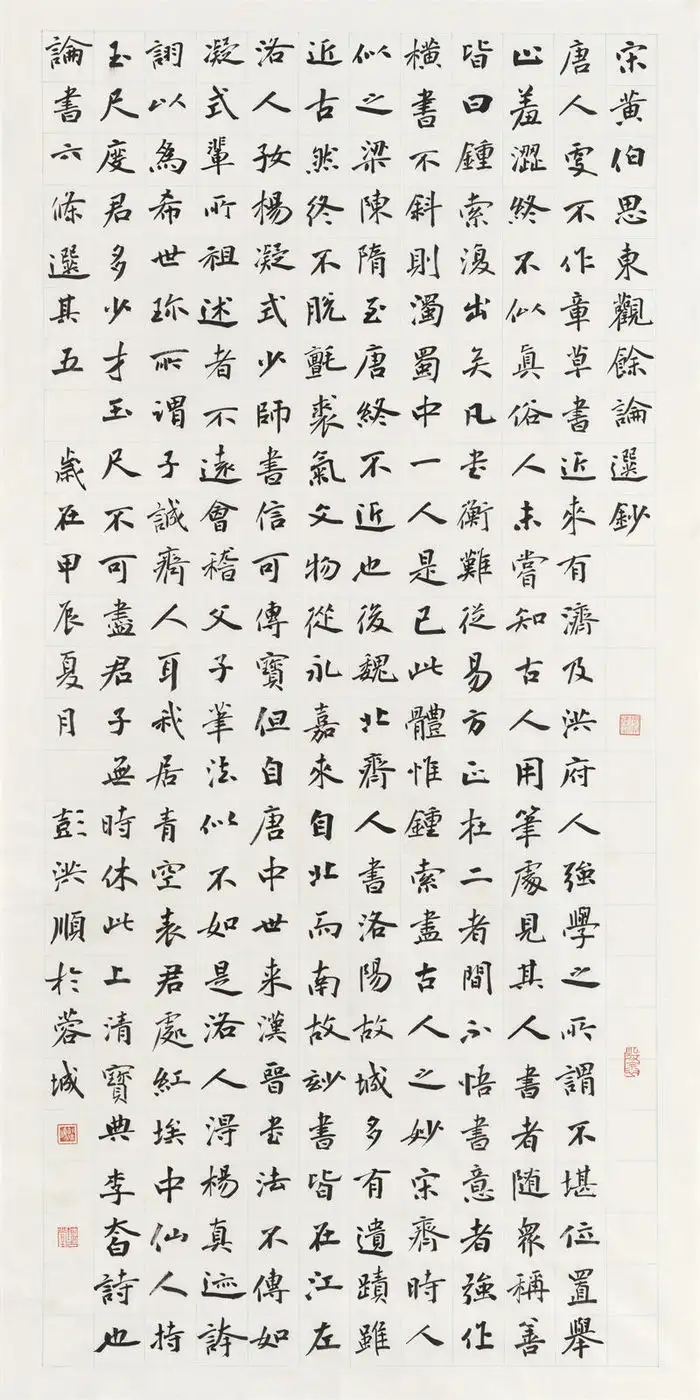 宋黄伯思東觀餘論選鈔
唐人更不作章草書近來有濟及洪府人強學之所謂不堪位置舉
止羞澀終不似真俗人未嘗知古人用筆處見其人書者随眾稱善
皆曰鍾索復出矣凡書衡難從易方正在二者間不悟書意者強作
横書不斜則濁蜀中一人是已此體惟鍾索盡古人之妙宋齊時人
似之梁陳隋至唐終不近也後魏北齊人書洛陽故城多有遺蹟雖
近古然終不脱氈裘氣文物從永嘉來自北而南故妙書皆在江左
洛人好楊凝式少師書信可傳寶但自唐中世来漢晉書法不傳如
凝式輩所祖述者不遠會稽父子筆法似不如是洛人得楊真迹誇
詡以為希世珎所謂子誠齊人耳我居青空表君處紅埃中仙人持
玉尺度君多少才玉尺不可盡君子無時休此上清寶典李太白詩也
論書六條選其五 歲在甲辰夏月 彭洪順於蓉城